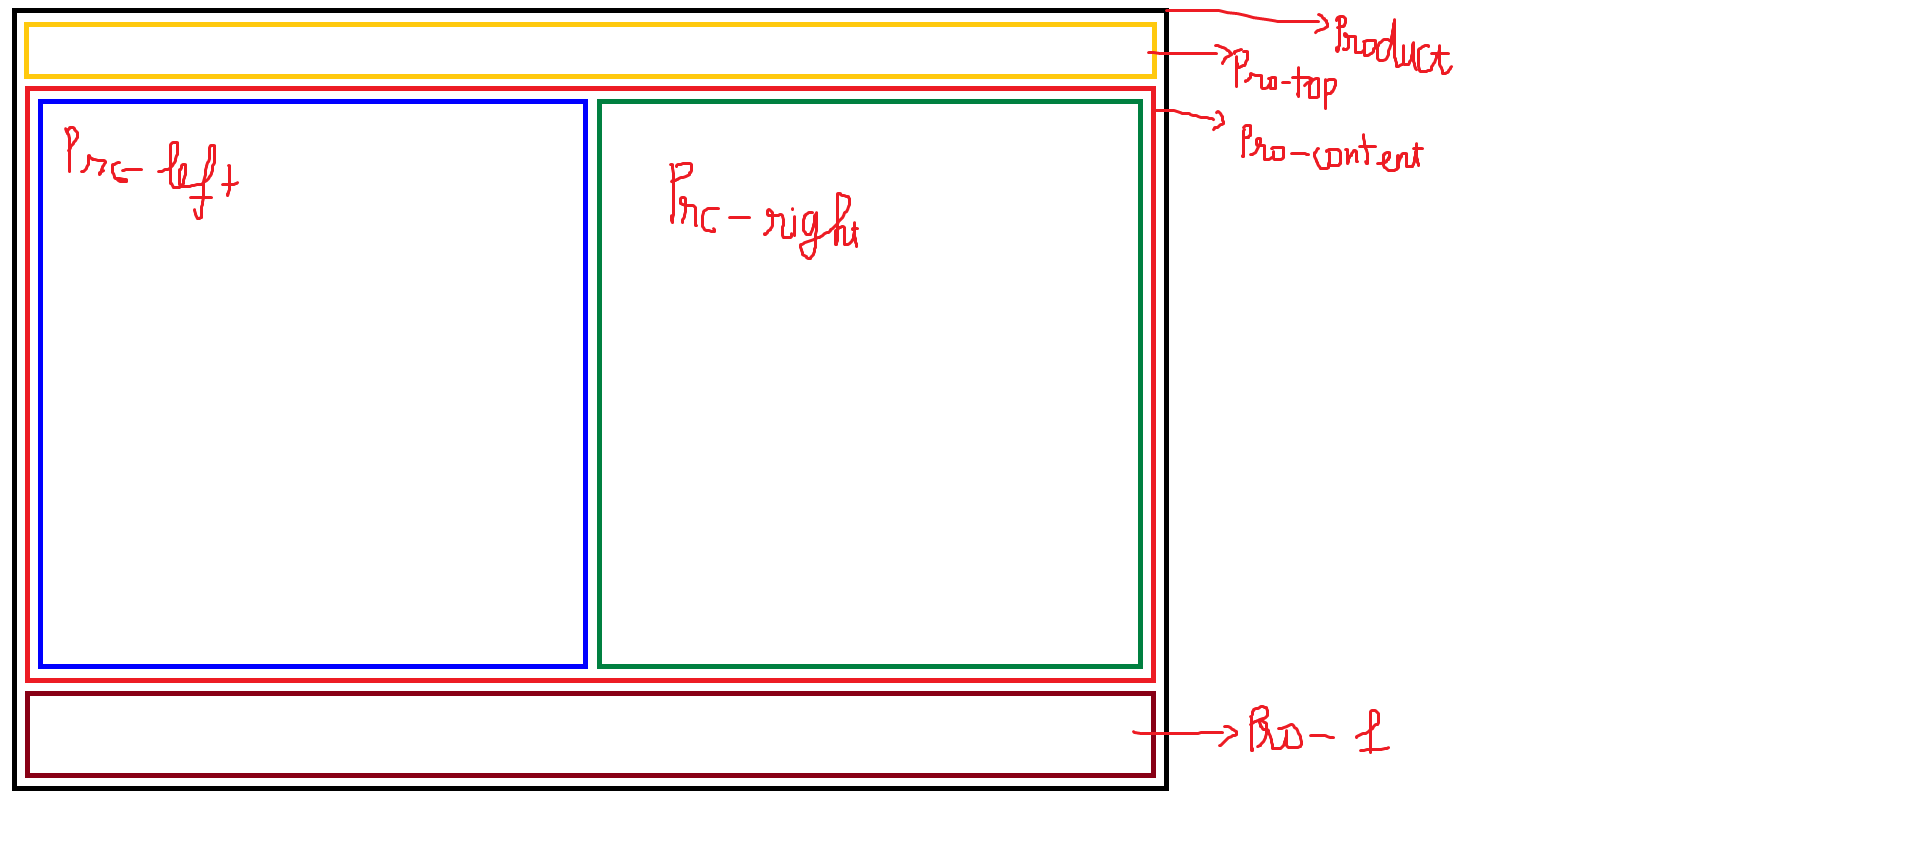 Product
Pro-top
Pro-content
Prc-left
Prc-right
Pro-f